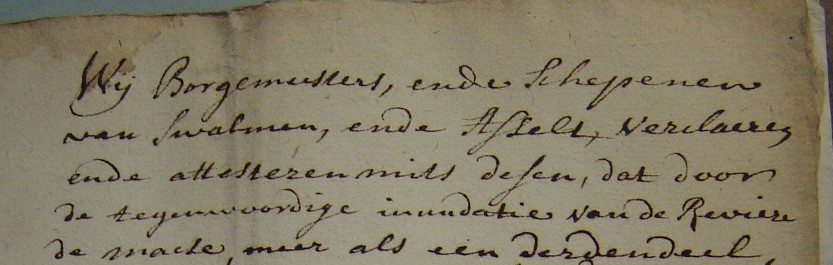 Wij Borgemeesters, ende Schepenen
van Swalmen, ende Asselt, Verclaeren
ende attesteren mits desen, dat door
de tegenwoordige inundatie van de Reviere
de maese, meer als een derdendeel,